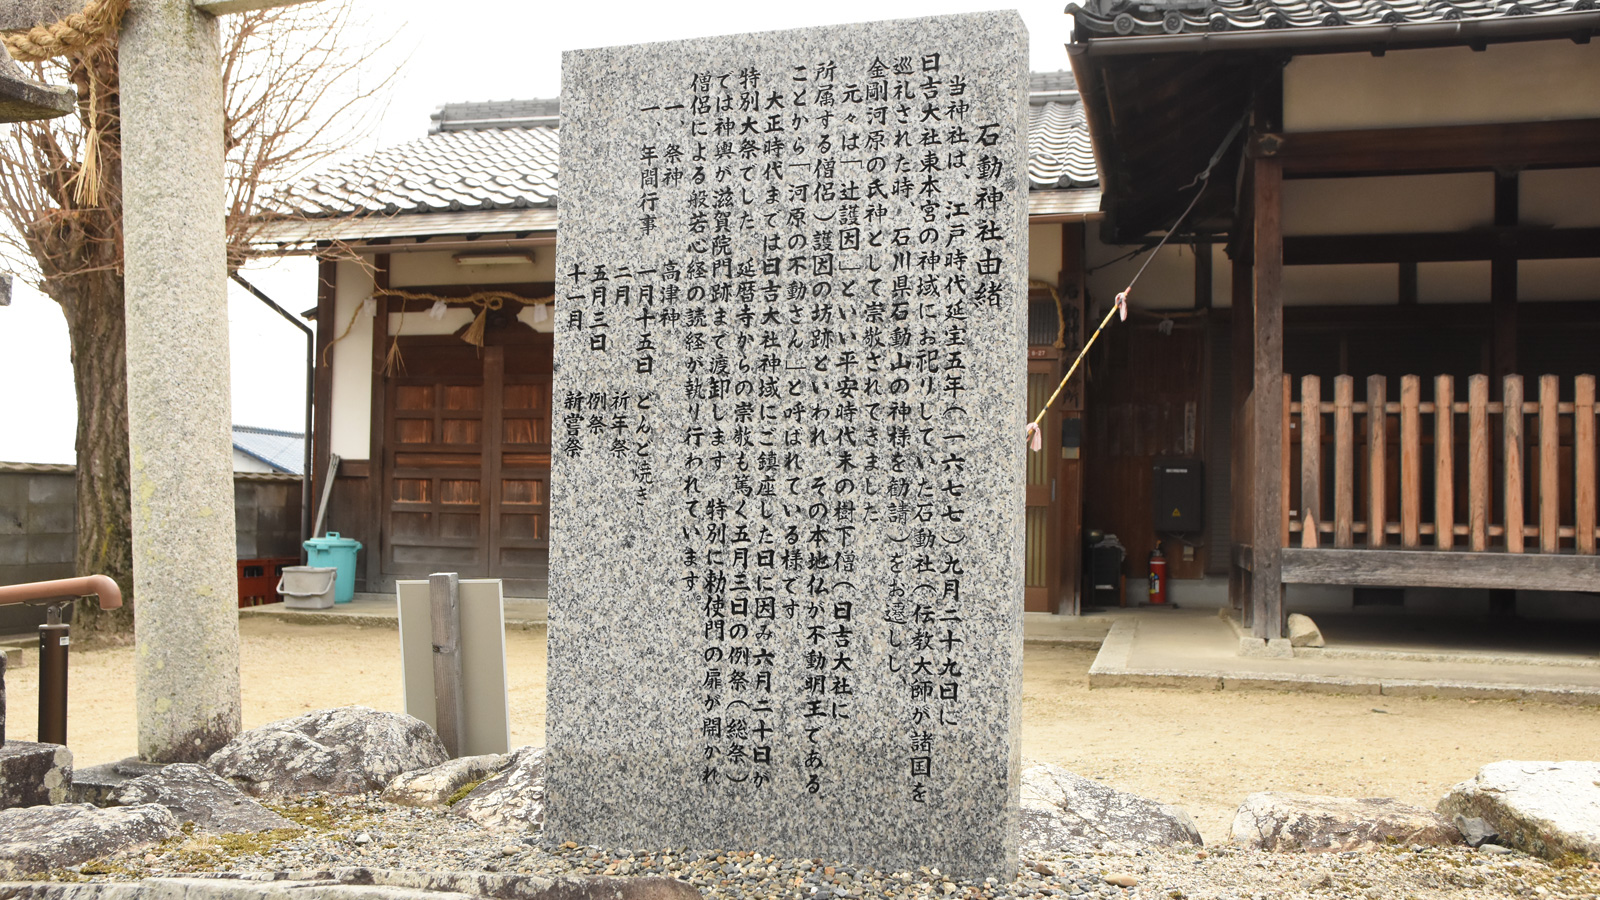 石動神社由緒
当神社は、江戸時代延宝五年（一六七七）九月二十九日に
日吉大社東本宮の神域にお祀りしていた石動社（伝教大師が諸国を
巡礼された時、石川県石動山の神様を勧請）をお遷しし、
金剛河原の氏神として崇敬されてきました
元々は「辻護因」といい平安時代末の樹下僧（日吉大社に
所属する僧侶）護因の坊跡といわれ、その本地仏が不動明王である
ことから「河原の不動さん」と呼ばれている様です。
大正時代までは日吉大社神域にご鎮座した日に因み六月二十日が
特別大祭でした。延暦寺からの崇敬も篤く五月三日の例祭（総祭）
ては神輿が滋賀院門跡まで渡卸します。特別に勅使門の扉が開かれ
僧侶による般若心経の読経が執り行われています。
一、祭神　高津神
一、年間行事　一月十五日　どんど焼き
二月　祈年祭
五月三日　例祭
十一月　新嘗祭